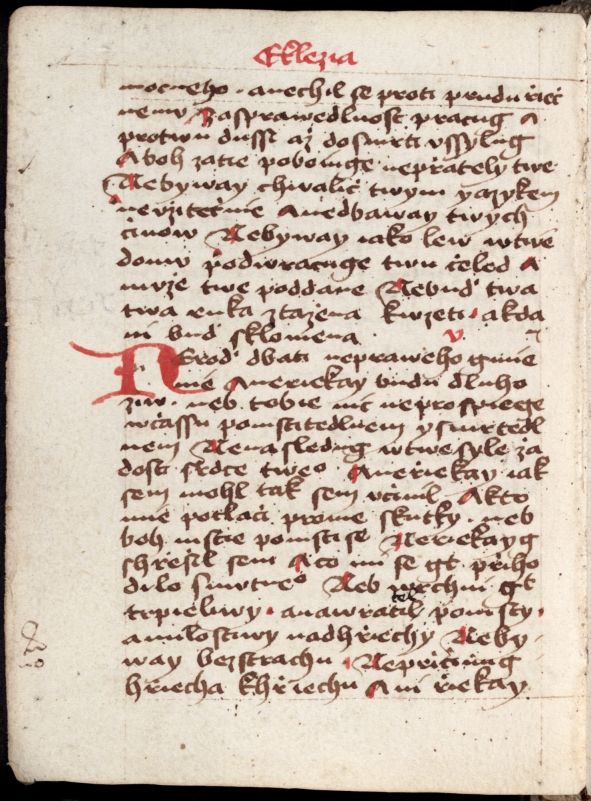 Ekklezia
mocneho · anechil se proti prudu řiečí
nemu Zasprawedlnost pracug A
protiwu dussi až dosmrti vssylug
A boh zatie poboinge neprately twe
Nebyway chwalić twym yazykem
nevžitečnie A nedbaway twych
činow Nebyway iako lew wtwe
domu podwracuge twu čeled A
mrže twe poddane Nebud twa
twa ruka ztažena kwzeti · akda
ni bud sklomena v
Nerod dbati nepraweho gmie
nie Aneriekay budu dluho
ziw · neb tobie nic neprospiege
wčassu pomstitedlnem ysmrtedl
nem Nenasledug wtwe syle ža
dosti srdce tweº Aneriekay iak
sem mohl tak sem včinil Akto
mie potlači prome skutky · neb
boh mstie pomsti se Neriekay g
shřešil sem Aco mi se gt přiho
dilo smutneº Neb wrchni gt
trpieliwy · anawratitel pomsty ·
amilostiwy nadhřiechy Neby
way bezstrachu · Nepričiniug
hřiecha khřiechu Ani řiekay